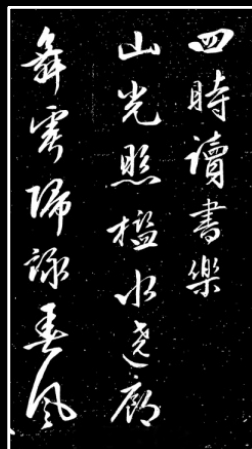 四時讀書樂
山光照檻水遶廊
舞雩歸詠春風